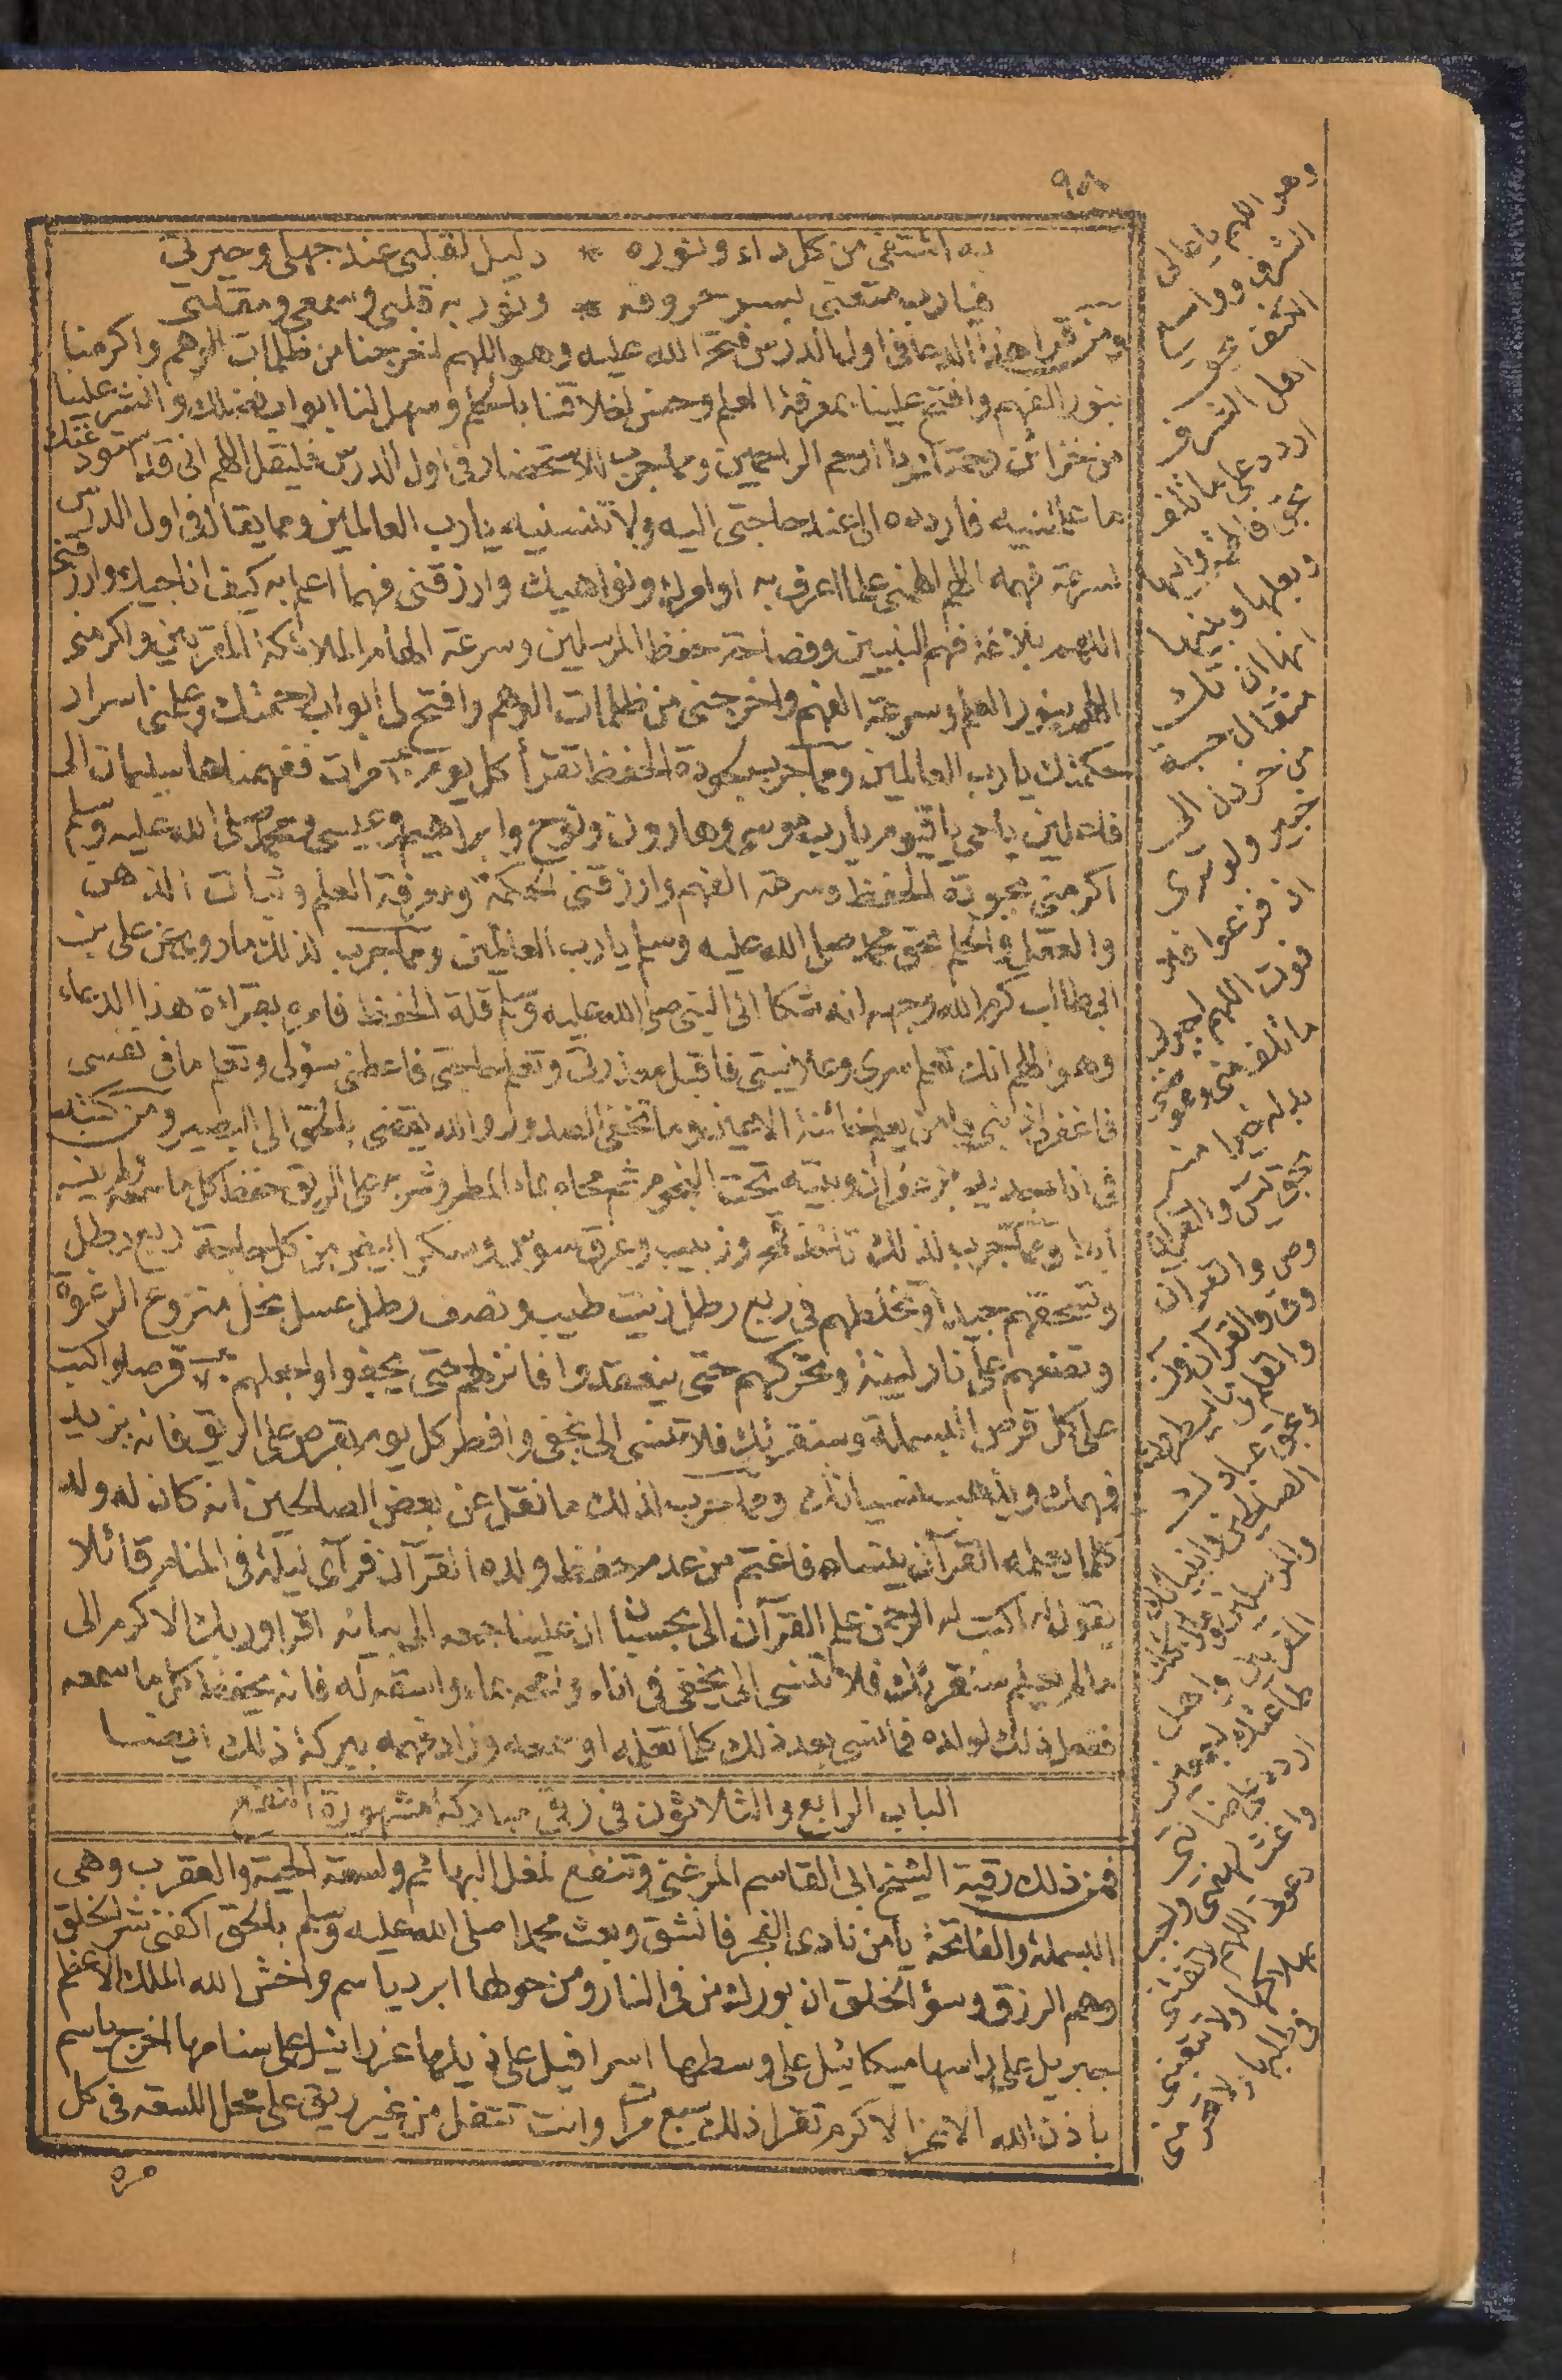 ٩٨
به اشتفى من كل داء ونوره * دليل لقلبى عند جهلى وحيرتى
فيارب متعنى بسر حروفه * ونور به قلبى وسمعى ومقلتى
ومن قرا هذا الدعا فى اول الدرس فتح الله عليه وهو اللهم اخرجنا من ظلمات الوهم واكرمنا
بنور الفهم وافتح علينا بمعرفة العلم وحسن اخلاقنا بالحلم وسهل لنا ابواب فضلك وانشر علينا
من خزائن رحمتك يا ارحم الراحمين ومما جرب للاستحضار فى اول الدرس فليقل اللهم انى قد استودعتك
ما علمتنيه فاردده الى عند حاجتى اليه ولا تنسنيه يارب العالمين ومما يقال فى اول الدرس
لسرعة فهمه اللهم الهمنى علما اعرف به اوامرك ونواهيك وارزقنى فهما اعلم به كيف اناجيك وارزقنى
اللهم بلاغة فهم النبيين وفصاحة حفظ المرسلين وسرعة الهام الملائكة المقربين واكرمنى
اللهم بنور العلم وسرعة الفهم واخرجنى من ظلمات الوهم وافتح لى ابواب رحمتك وعلمنى اسرار
حكمتك يارب العالمين ومما جرب لجودة الحفظ تقرأ كل يوم مرات ففهمناها سليمان الى
فاعلين ياحى ياقيوم يارب موسى وهارون ونوح وابراهيم وعيسى ومحمد صلى الله عليه وسلم
اكرمنى بجودة الحفظ وسرعة الفهم وارزقنى الحكمة ومعرفة العلم وثبات الذهن
والعقل والحلم بحق محمد صلى الله عليه وسلم يارب العالمين ومما جرب لذلك ماروى عن على بن
ابى طالب كرم الله وجهه انه شكا الى النبى صلى الله عليه وسلم قلة الحفظ فامره بقراءة هذا الدعاء
وهو اللهم انك تعلم سرى وعلانيتى فاقبل معذرتى وتعلم حاجتى فاعطنى سؤلى وتعلم مافى نفسى
فاغفر لى ذنبى يامن يعلم خائنة الاعين وما تخفى الصدور والله يقضى بالحق الى البصير ومن كتبه
فى اناء جديد بزعفران وبيته تحت النجوم ثم محاه بماء المطر وشربه على الريق حفظ كل ماسمعه ولم ينسه
ابدا ومما جرب لذلك تاخذ تمر وزبيب وعرق سوس وسكر ابيض من كل حاجة ربع رطل
وتسحقهم جيدا وتخلطهم فى ربع رطل زيت طيب ونصف رطل عسل نحل منزوع الرغوة
وتضعهم على نار لينة وتحركهم حتى ينعقدوا فانزلهم حتى يجفوا واجعلهم قرصا واكتب
على كل قرص البسملة وسنقرئك فلا تنسى الى يخفى وافطر كل يوم بقرص على الريق فانه يزيد
فهمك ويذهب نسيانك ومما جرب لذلك ما نقل عن بعض الصالحين انه كان له ولد
كلما يعلمه القرآن ينساه فاغتم من عدم حفظ ولده القرآن فرآى ليلة فى المنام قائلا
يقول له اكتب له الرحمن علم القرآن الى بحسبان ان علينا جمعه الى بيانه اقرا وربك الاكرم الى
مالم يعلم سنقرئك فلا تنسى الى يخفى فى اناء وامحه بماء واسقه له فانه يحفظ كل ماسمعه
ففعل ذلك لولده فمانسى بعد ذلك كلما تعلمه او سمعه وزاد فهمه ببركة ذلك ايضا
الباب الرابع والثلاثون فى رقى مباركة مشهورة النفع
فمن ذلك رقية الشيخ ابى القاسم المرغنى وتنفع لمغل البهائم ولسعة الحية والعقرب وهى
البسملة والفاتحة يا من نادى الفجر فانشق وبعث محمدا صلى الله عليه وسلم بالحق اكفنى شر الخلق
وهم الرزق وسؤ الخلق ان بورك من فى النار ومن حولها ابرد ياسم واخش الله الملك الاعظم
جبريل على راسها ميكائيل على وسطها اسرافيل على ذيلها عزرائيل على سنامها اخرج ياسم
باذن الله الاعز الاكرم تقرا ذلك سبع مرات وانت تتفل من غير ريق على محل اللسعة فى كل
مرة
اهل الشرف
اردد على ما تلف
وبعلها وبنيها
انها ان تك
مثقال حبة
من خردل الى
خبير ولو ترى
اذ فزعوا فلا
فوت اللهم
وص والقرآن
وق والقرآن
الصالحين وانبيائك
اردد على ضالتى